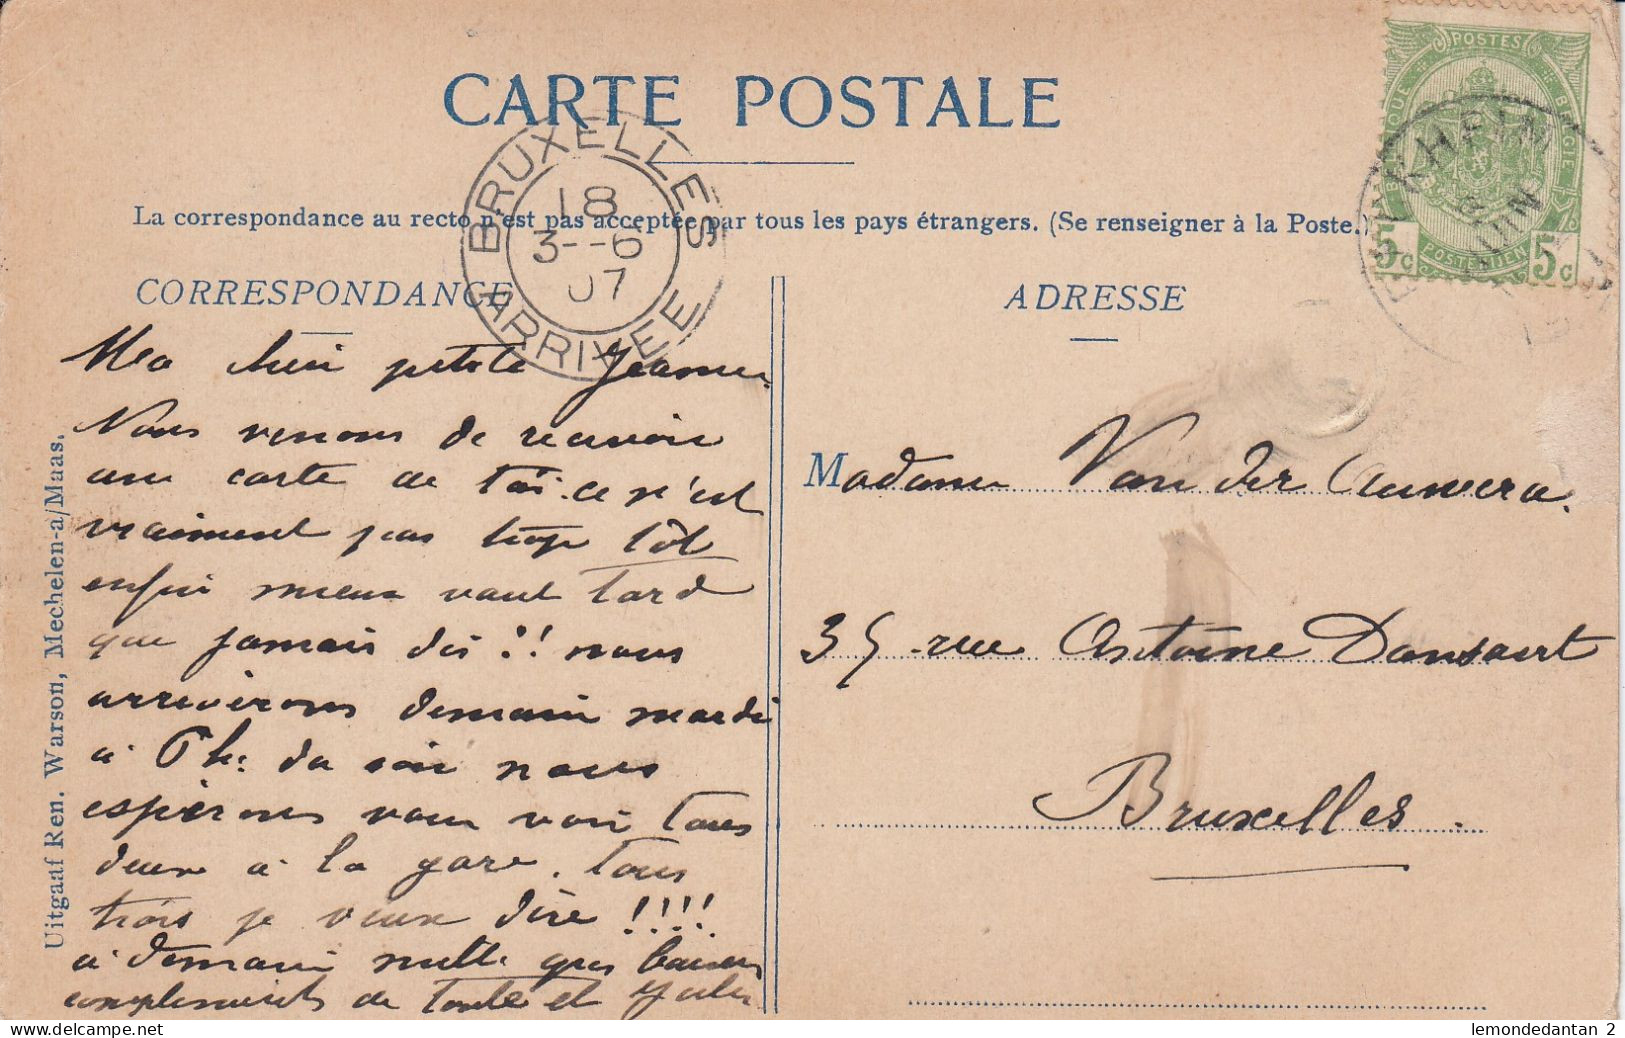 CARTE POSTALE
La correspondance au recto n'est pas acceptée par tous les pays étrangers. (Se renseigner à la Poste.)
BRUXELLES
18
3--6
07
ARRIVEE
POSTES
BELGIQUE
BELGIE
POSTERIJEN
5c 5c
KHEIM
JUIN
CORRESPONDANCE
Ma chère petite Jeanne.
Nous venons de recevoir
une carte de toi. ce n'est
vraiment pas trop tôt
enfin mieux vaut tard
que jamais dis !! nous
arriverons demain mardi
à h. du soir nous
espérons vous voir tous
deux à la gare. tous
trois je veux dire !!!!
à demain mille gros baisers
compliments de tante et
ADRESSE
Madame Van der Auwera.
35 rue Antoine Dansaert
Bruxelles.
Uitgaaf Ren. Warson, Mechelen-a/Maas.
lemondedantan 2